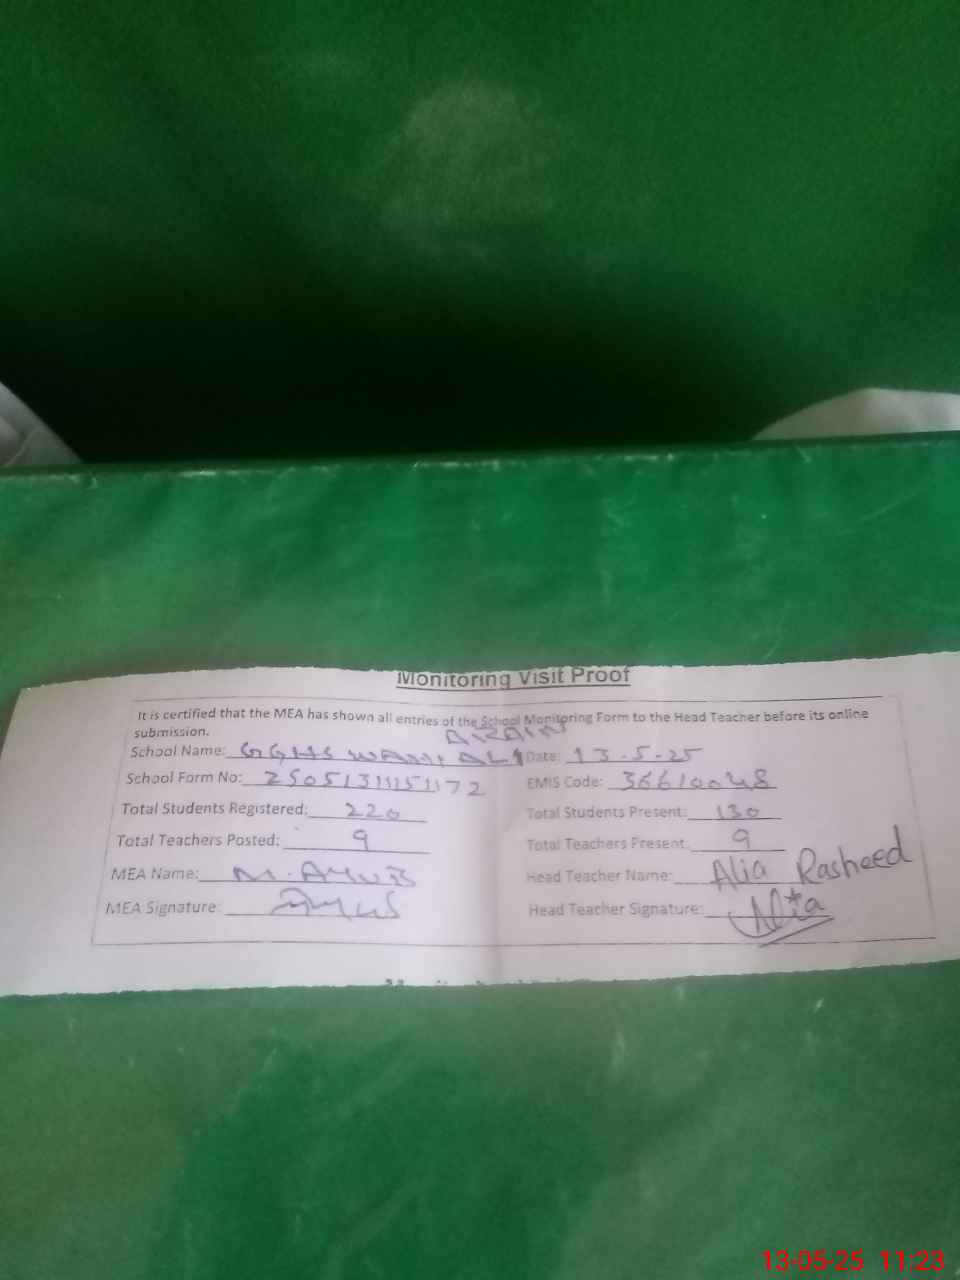 Monitoring Visit Proof
It is certified that the MEA has shown all entries of the School Monitoring Form to the Head Teacher before its online
submission.
ARAIN
School Name: GGHS WALI ALI Date: 13-5-25
School Form No: EMIS Code: 36610048
Total Students Registered: 220 Total Students Present: 130
Total Teachers Posted: 9 Total Teachers Present: 9
MEA Name: M. AYUB Head Teacher Name: Alia Rasheed
MEA Signature: Head Teacher Signature: Alia
13-05-25 11:23